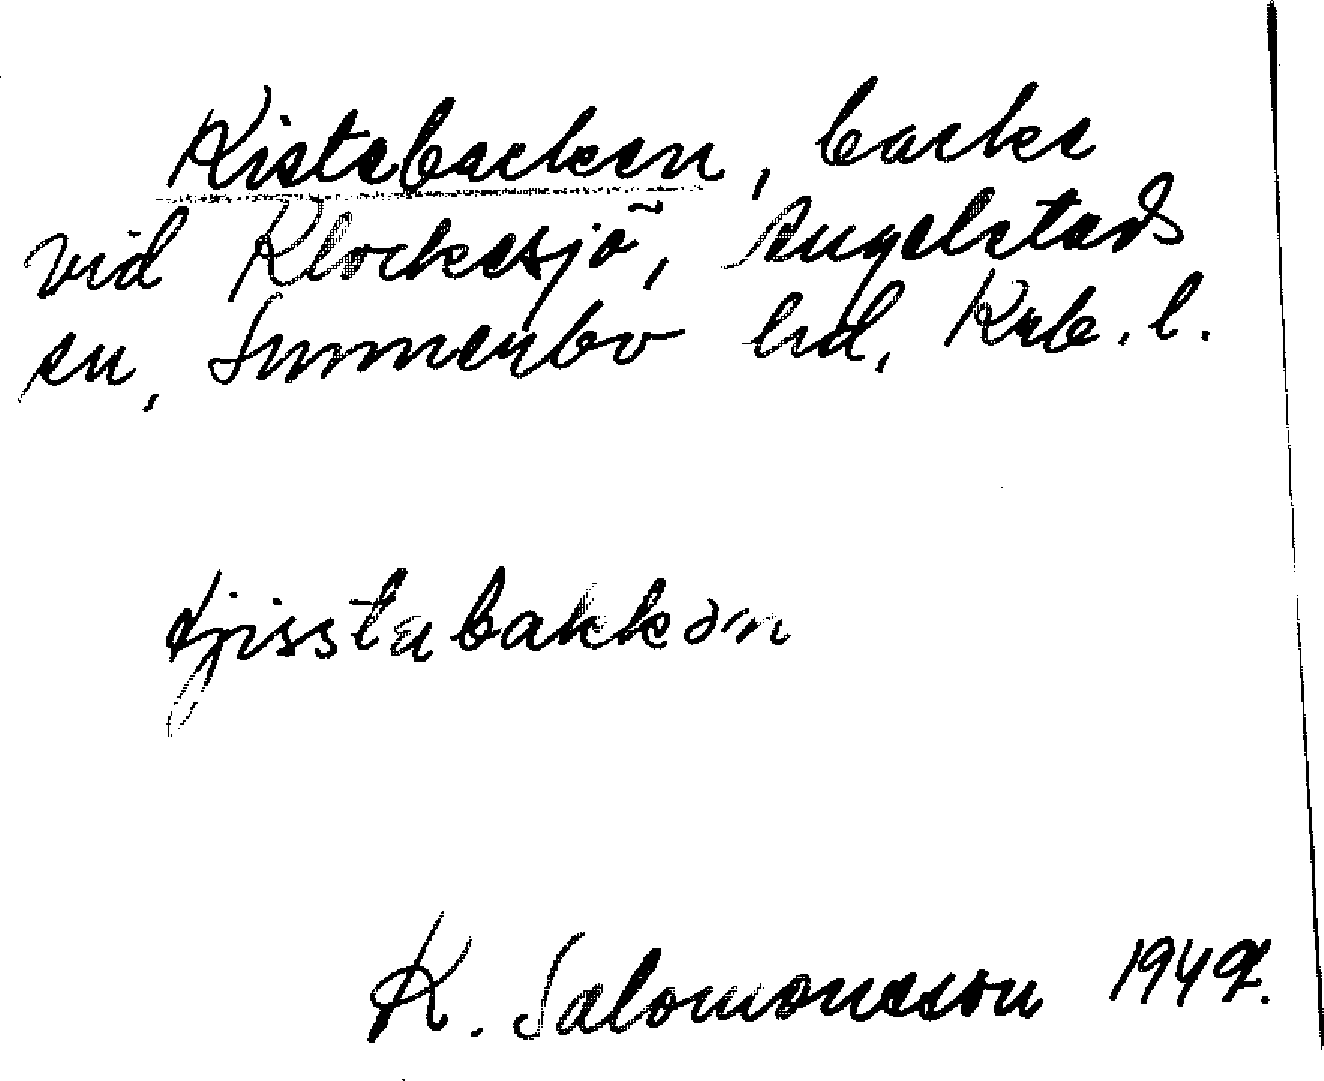 Kistebacken, backe
vid Klockesjö, Angelstads
sn, Sunnerbo hd, Krb. l.
tjisstabakkən
K. Salomonsson 1949.